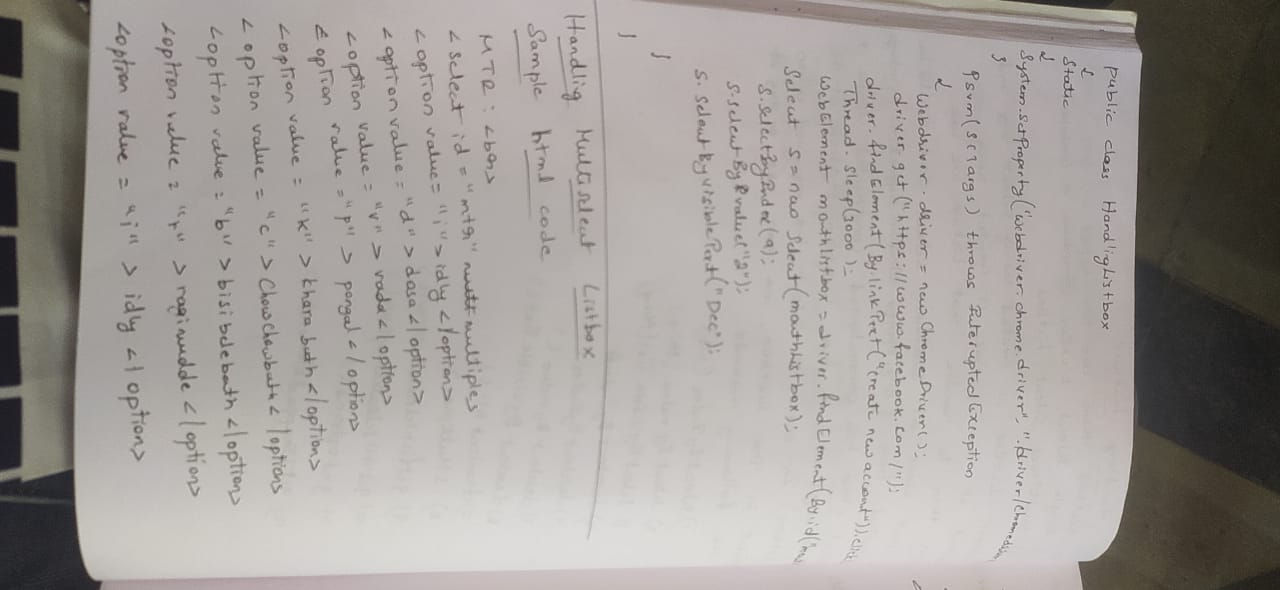 public class Handlighistbox
{
Static
{
System.setProperty("webdriver.chrome.driver", "./driver/chromed
}
psvm(s[]args) throws Interupted Exception
{
Webdriver.driver = new ChromeDriver();
driver.get("https://www.facebook.com/");
driver.findElement(By.linkText("create new account")).click
Thread.sleep(3000);
WebElement monthlistbox = driver.findElement(By.id("mo
Select s = new Select(monthlistbox);
s.selectByIndex(9);
s.selectByvalue("2");
s.selectByvisibleText("Dec");
}
}
Handling Multiselect Listbox
Sample html code
MTR : <box>
<select id = "mtr" multiples
<option value = "i" > idly </option>
<option value = "d" > dosa </option>
<option value = "v" > vada </option>
<option value = "p" > pongal </option>
<option value = "k" > khara bath </option>
<option value = "c" > Chowchowbath </option>
<option value = "b" > bisibelebath </option>
<option value = "r" > ragimudde </option>
<option value = "i" > idly </option>